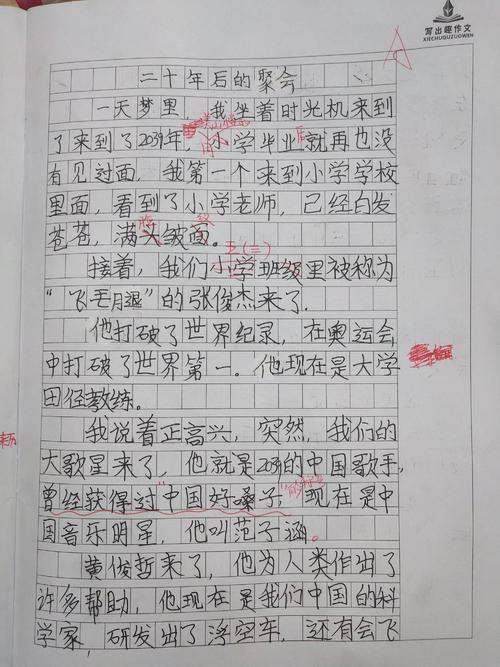 写出趣作文
XIECHUQUZUOWEN
A
二十年后的聚会
一天梦里,我坐着时光机来到
了来到了2039年,小学毕业后就再也没
有见过面,我第一个来到小学学校
里面,看到了小学老师,已经白发
苍苍,满头皱面。
脸 纹
五(三)
接着,我们小学班级里被称为
“飞毛月退”的张俊杰来了.
他打破了世界纪录,在奥运会
中打破了世界第一。他现在是大学
田径教练。
我说着正高兴,突然,我们的
大歌星来了,他就是2039的中国歌手,
曾经获得过“中国好嗓子”现在是中
国音乐明星,他叫范子涵。
黄俊哲来了,他为人类作出了
许多帮助,他现在是我们中国的科
学家,研发出了浮空车,还有会飞